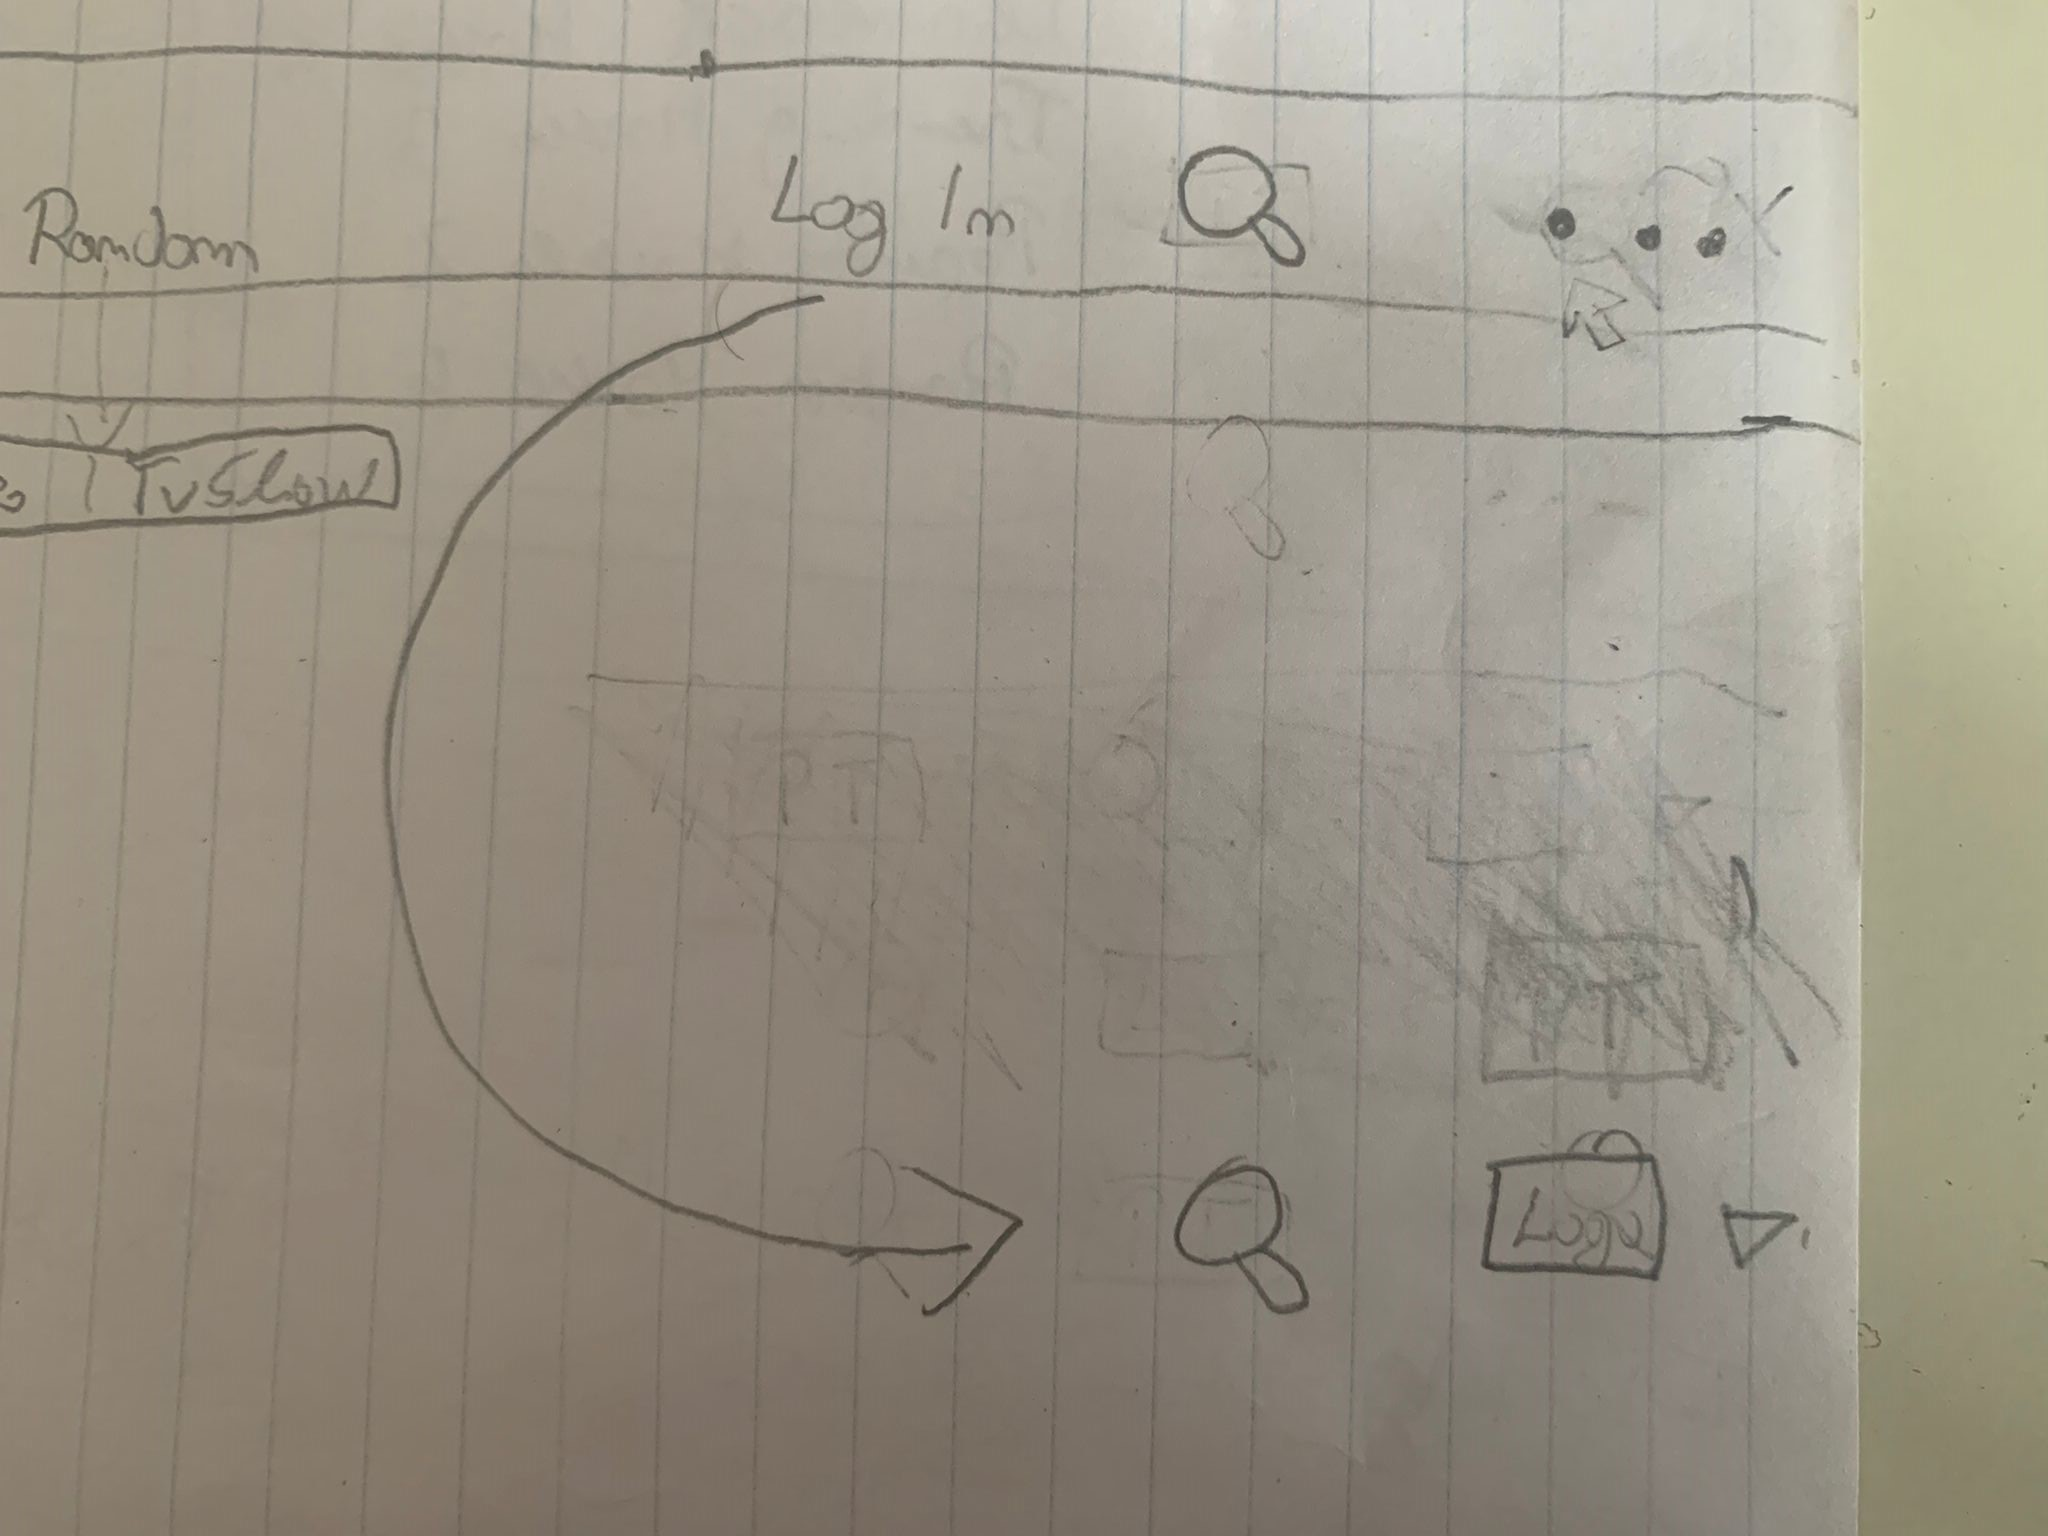 Random Log In
TvShow
PT
Logo